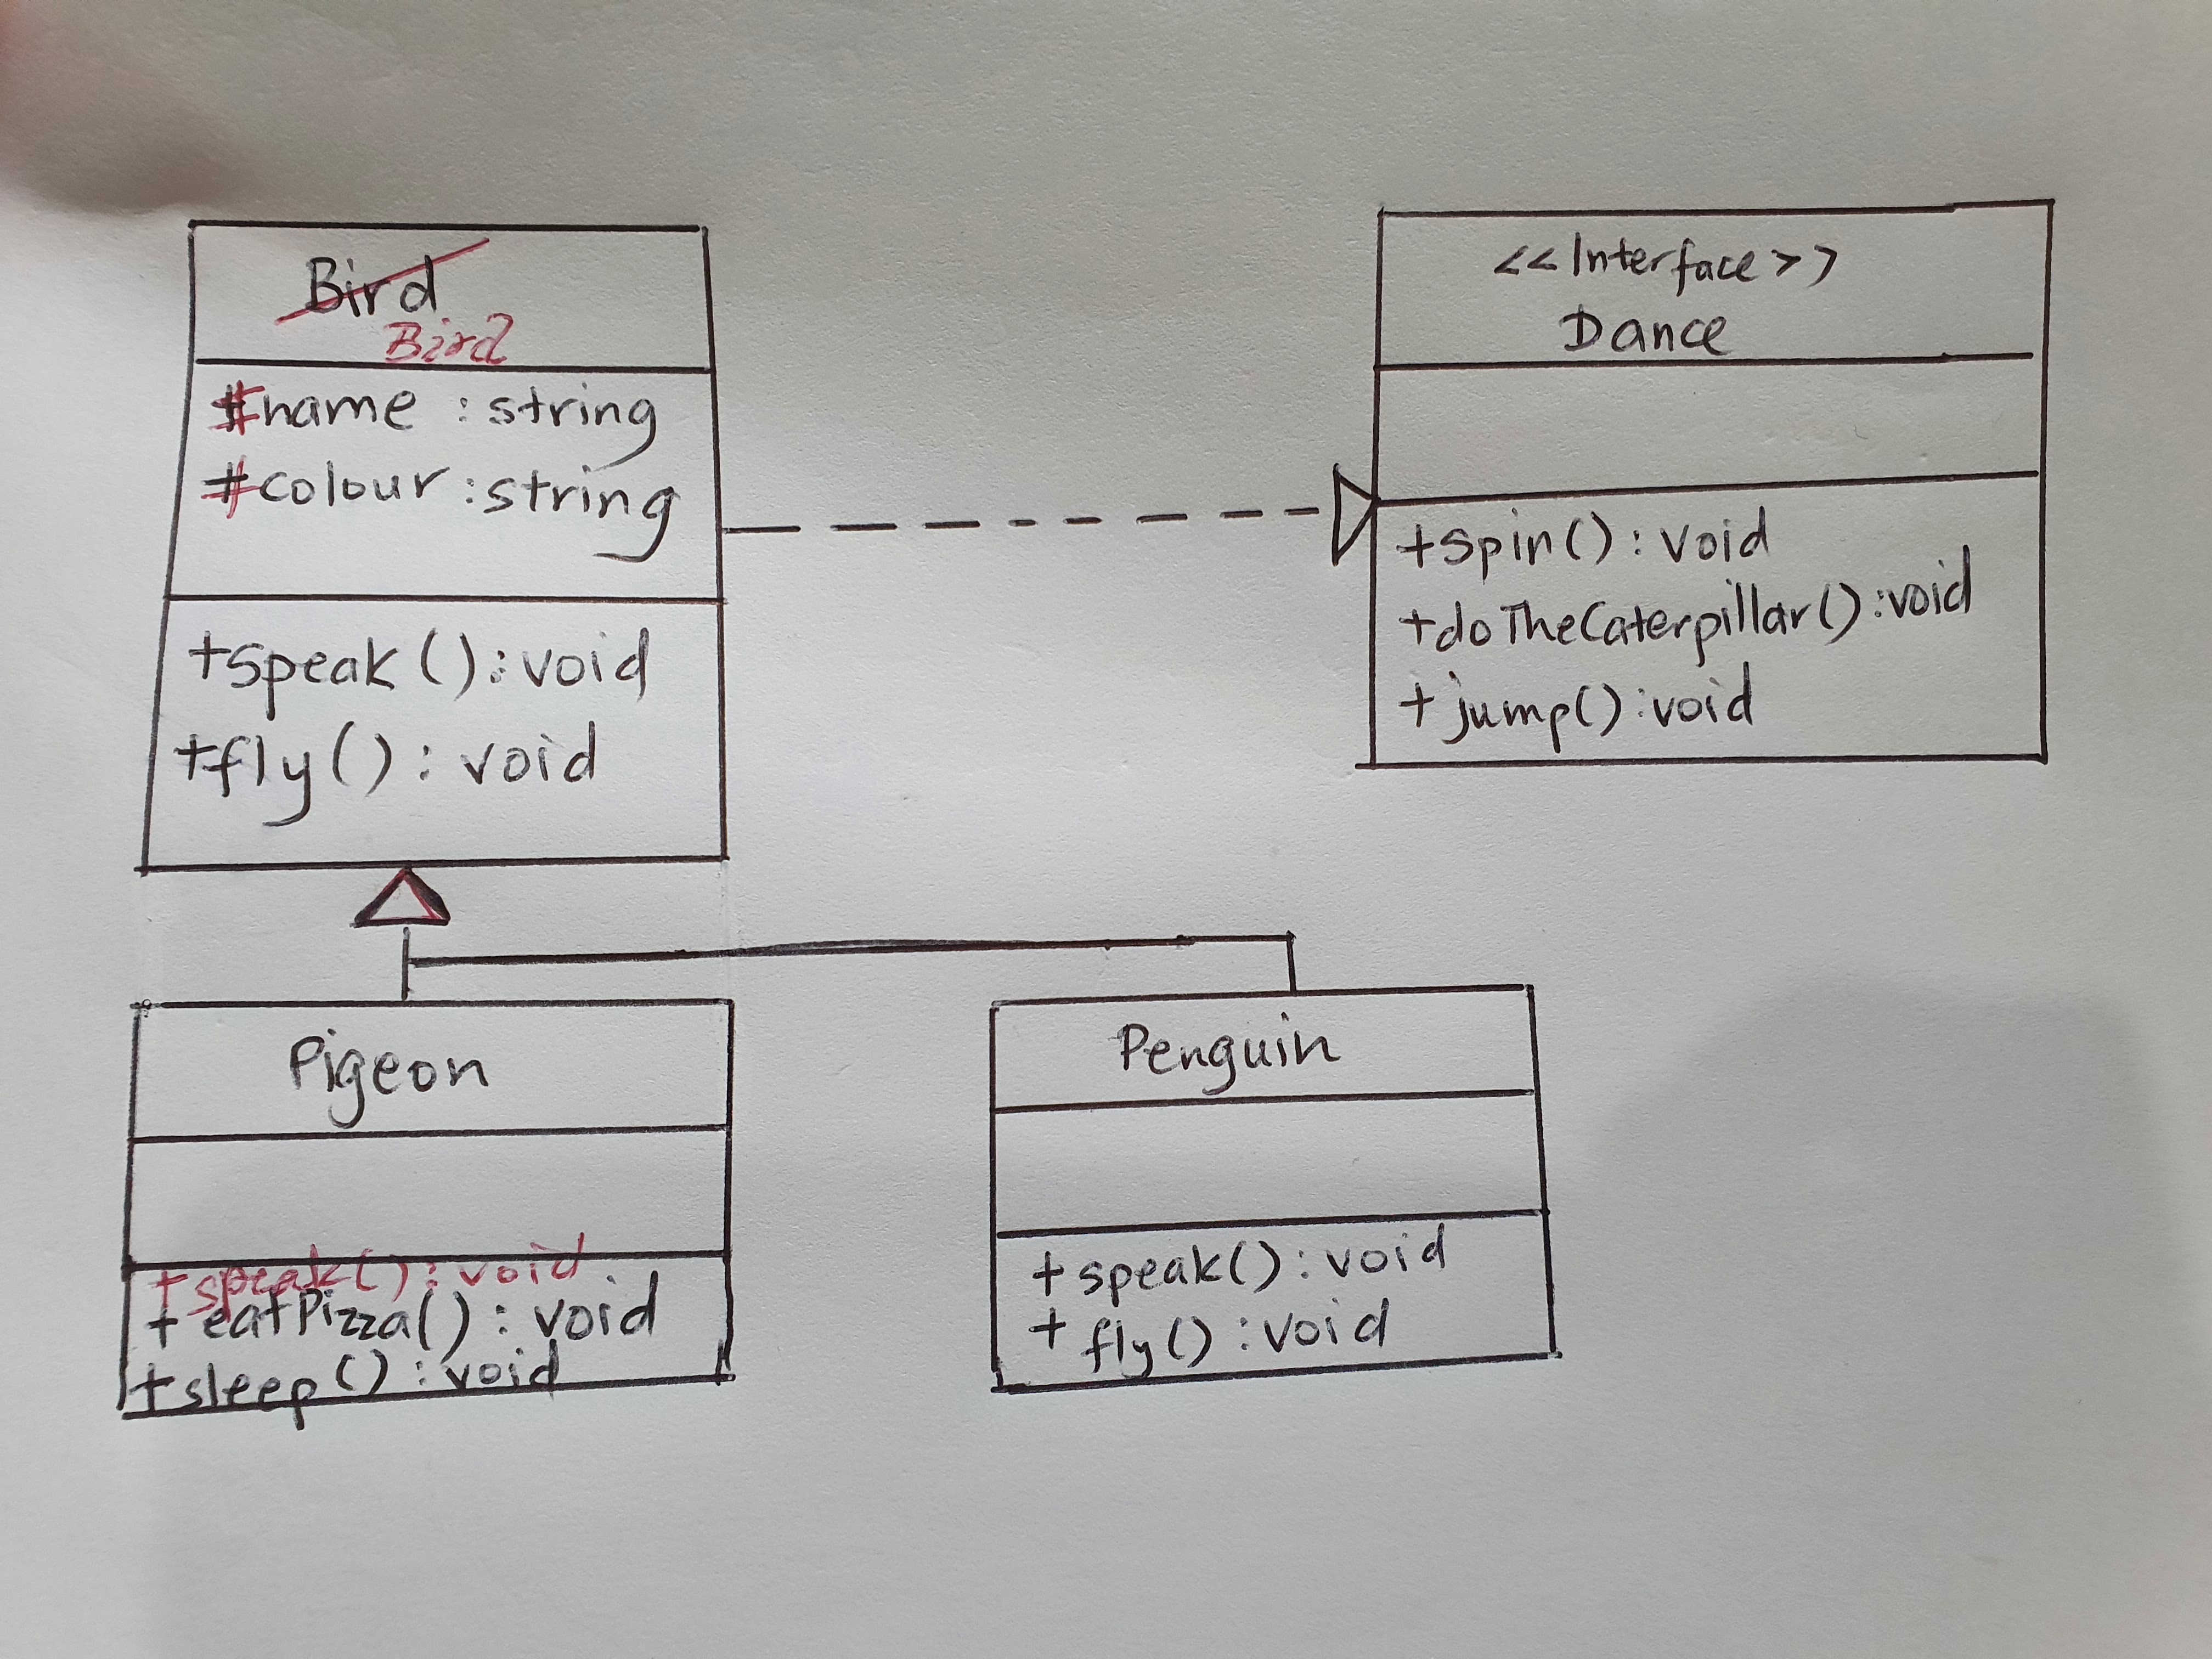 Bird
Bird
#name : string
#colour : string
+speak() : void
+fly() : void
<<Interface>>
Dance
+spin() : void
+doTheCaterpillar() : void
+jump() : void
Pigeon
+speak() : void
+eatPizza() : void
+sleep() : void
Penguin
+speak() : void
+fly() : void